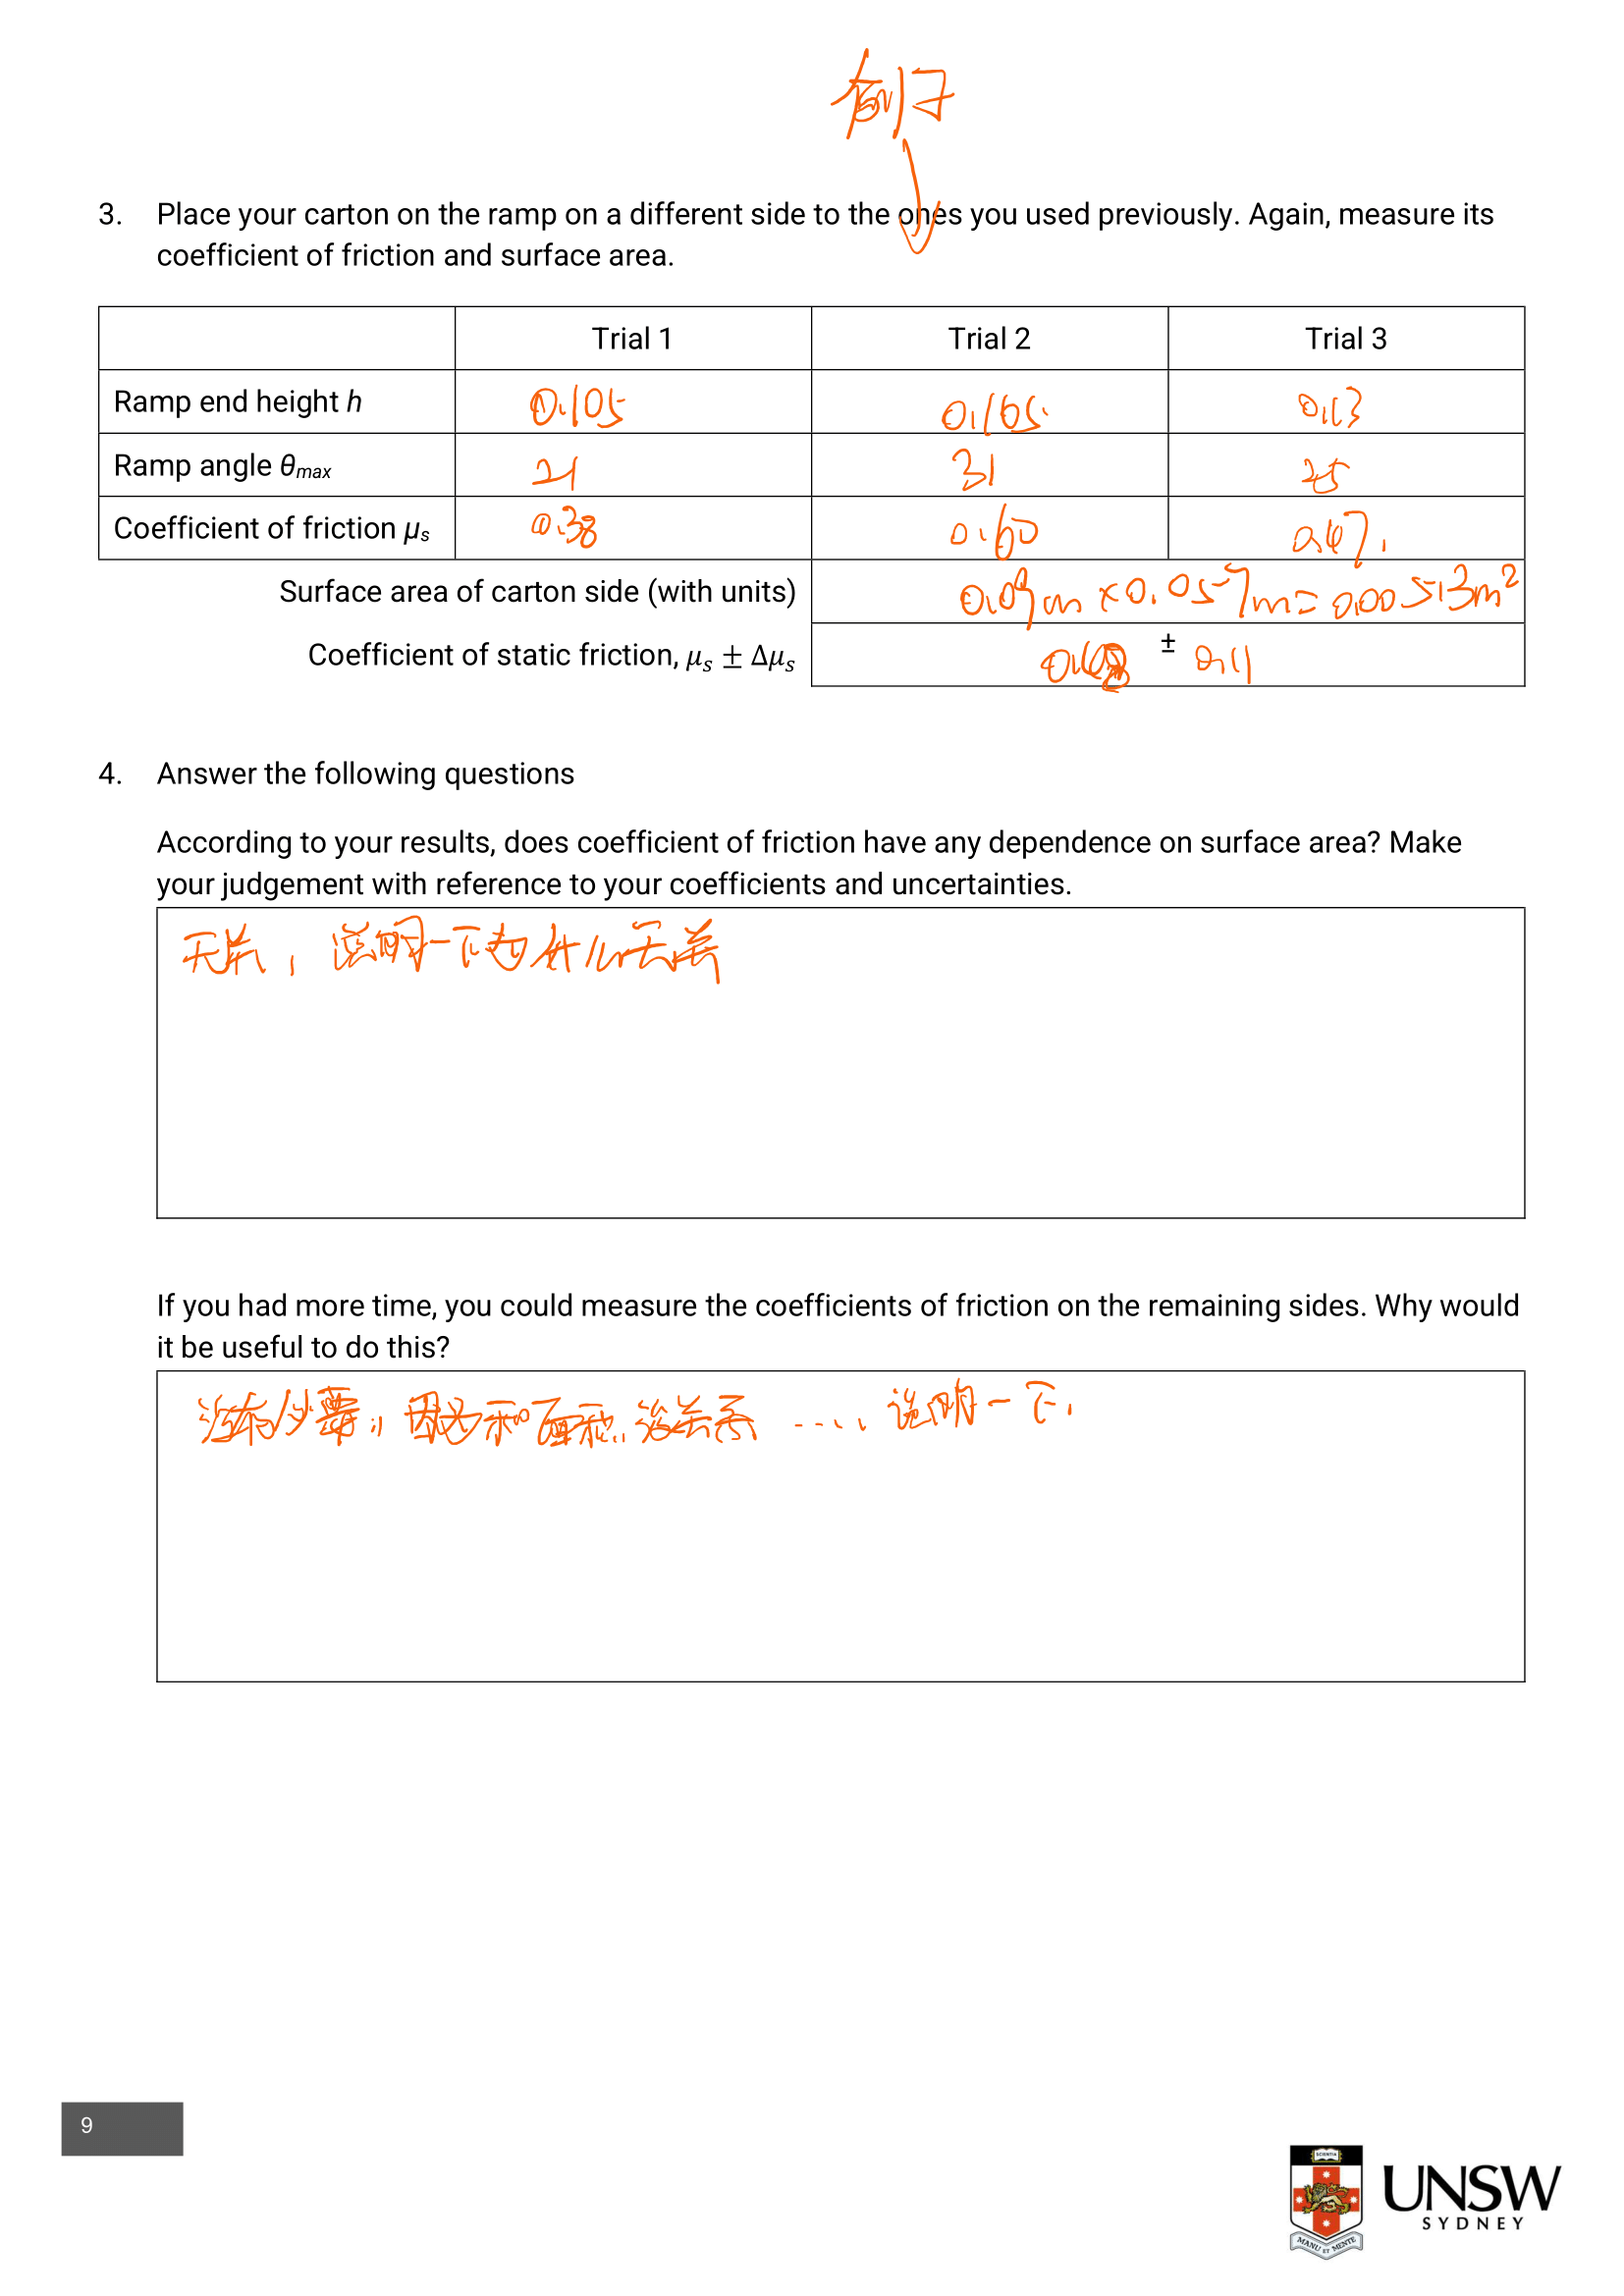 有例子
3. Place your carton on the ramp on a different side to the ones you used previously. Again, measure its
coefficient of friction and surface area.
Trial 1 Trial 2 Trial 3
Ramp end height h 0.105 0.165 0.13
Ramp angle θmax 21 31 25
Coefficient of friction μs 0.38 0.60 0.47
Surface area of carton side (with units) 0.09m × 0.057m = 0.00513m²
Coefficient of static friction, μs ± Δμs ± 0.11
4. Answer the following questions
According to your results, does coefficient of friction have any dependence on surface area? Make
your judgement with reference to your coefficients and uncertainties.
无关, 说明一下为什么无关
If you had more time, you could measure the coefficients of friction on the remaining sides. Why would
it be useful to do this?
没有必要, 因为和面积没关系 ..... 说明一下.
9
SCIENTIA
MANU ET MENTE
UNSW
SYDNEY